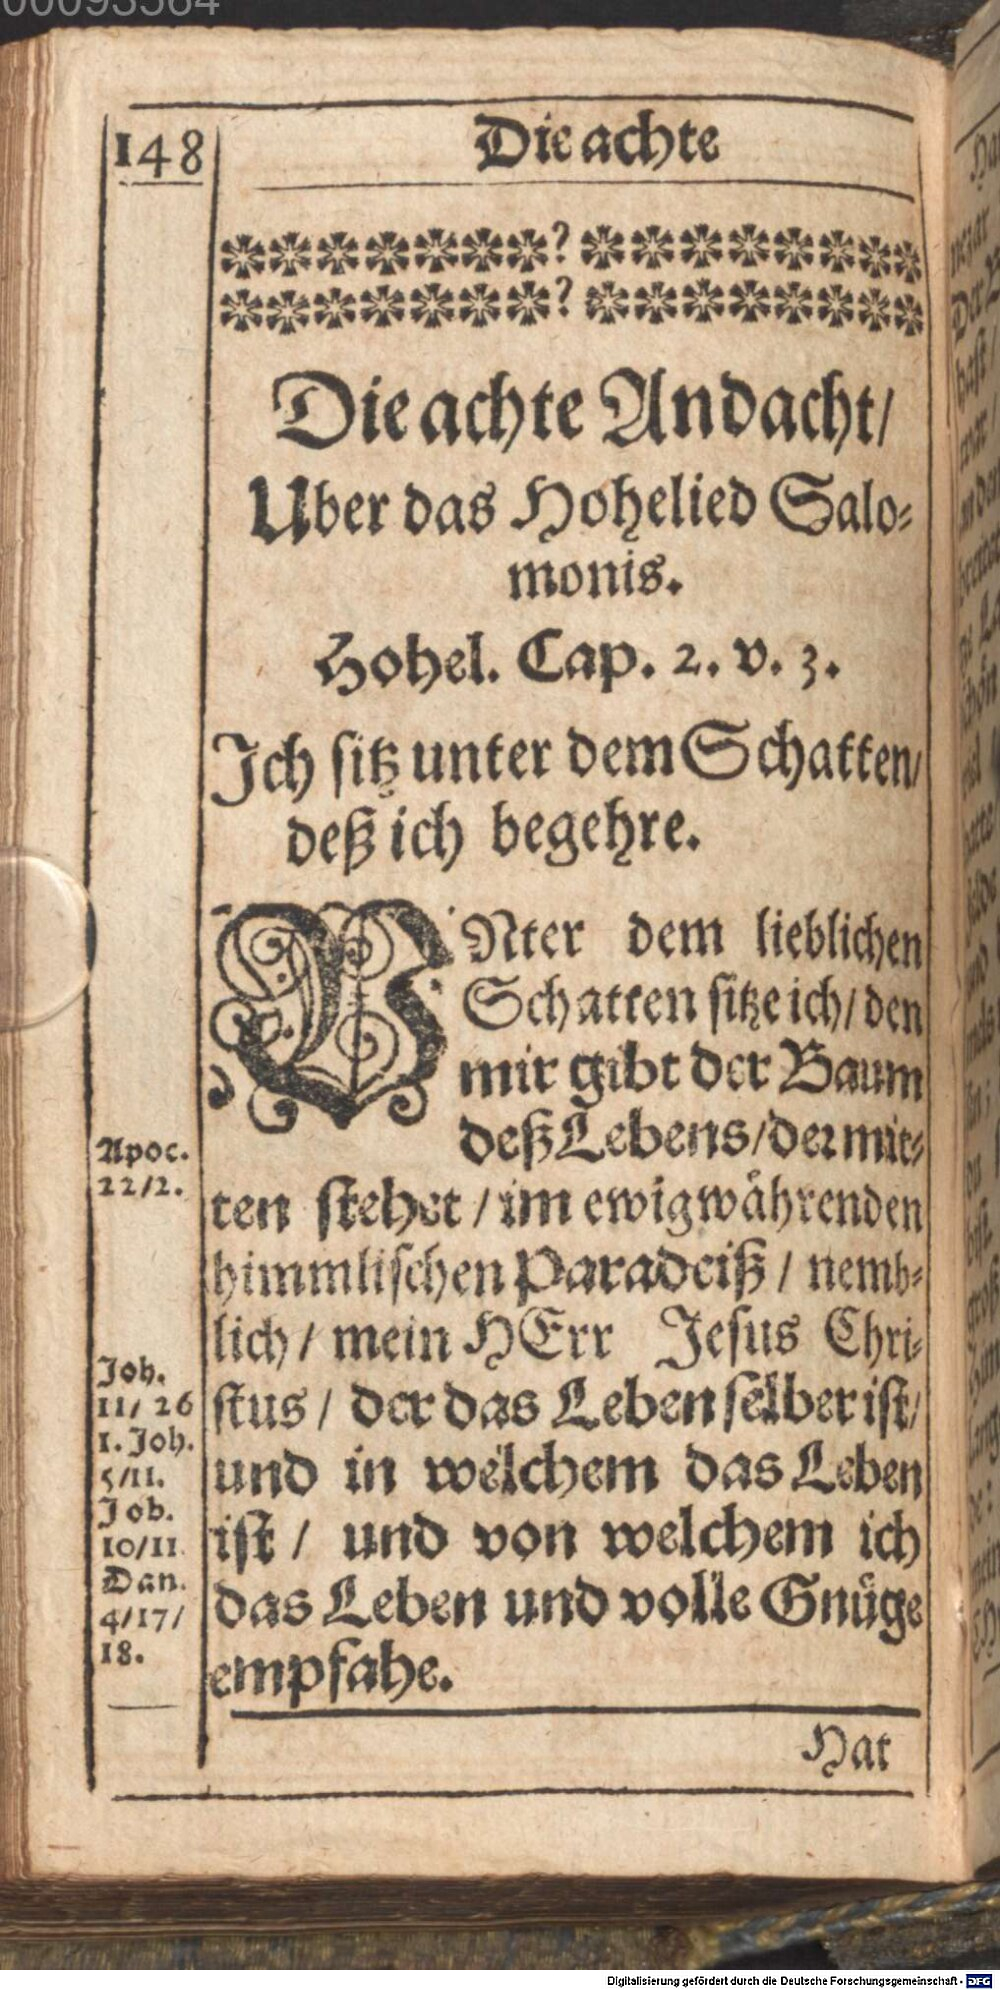 148
Die achte
Die achte Andacht/
Uber das Hohelied Salo⸗
monis.
Hohel. Cap. 2. v. 3.
Ich sitz unter dem Schatten/
deß ich begehre.
UNter dem lieblichen
Schatten sitze ich/ den
mir gibt der Baum
deß Lebens/ der mit⸗
ten stehet / im ewigwåhrenden
himmlischen Paradeiß / nemb⸗
lich / mein HErr Jesus Chri⸗
stus / der das Leben selber ist/
und in welchem das Leben
ist / und von welchem ich
das Leben und volle Gnüge
empfahe.
Apoc.
22/2.
Joh.
11/ 26
1. Joh.
5/11.
Job.
10/11
Dan.
4/17/
18.
Hat
Digitalisierung gefördert durch die Deutsche Forschungsgemeinschaft - DFG